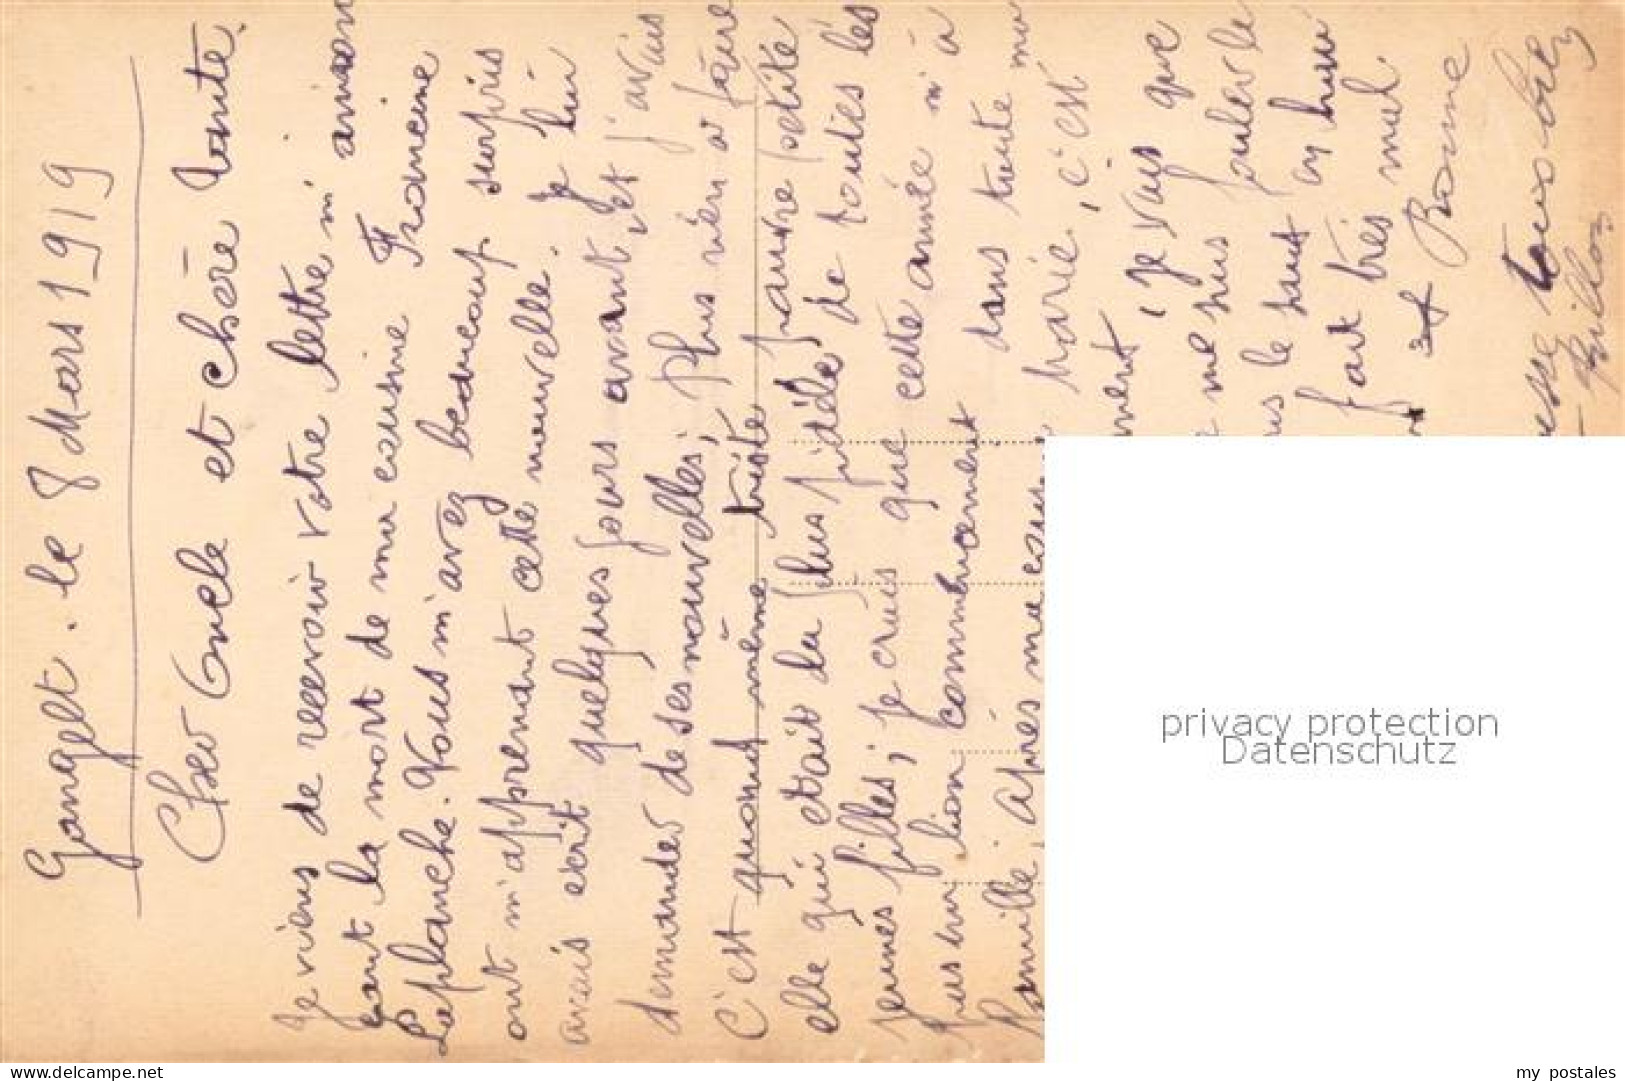 Gangelt. le 8 Mars 1919
Cher Oncle et chère Tante.
Je viens de recevoir votre lettre m'annon
çant la mort de ma cousine Francine
Laplanche. Vous m'avez beaucoup surpris
ont m'apprenant cette nouvelle. Je lui
avais écrit quelques jours avant, et j'avais
demander de ses nouvelles; plus rien a faire
C'est quand même triste pauvre petite
elle qui était la plus fidèle de toutes les
jeunes filles; je crois que cette année m'a
bien commencement dans toute ma
famille, après ma cous
Marie, c'est
ment, je vais que
me suis fouler le
us le haut en huu
fait très mal.
et Bonne
privacy protection
Datenschutz
delcampe.net
my_postales